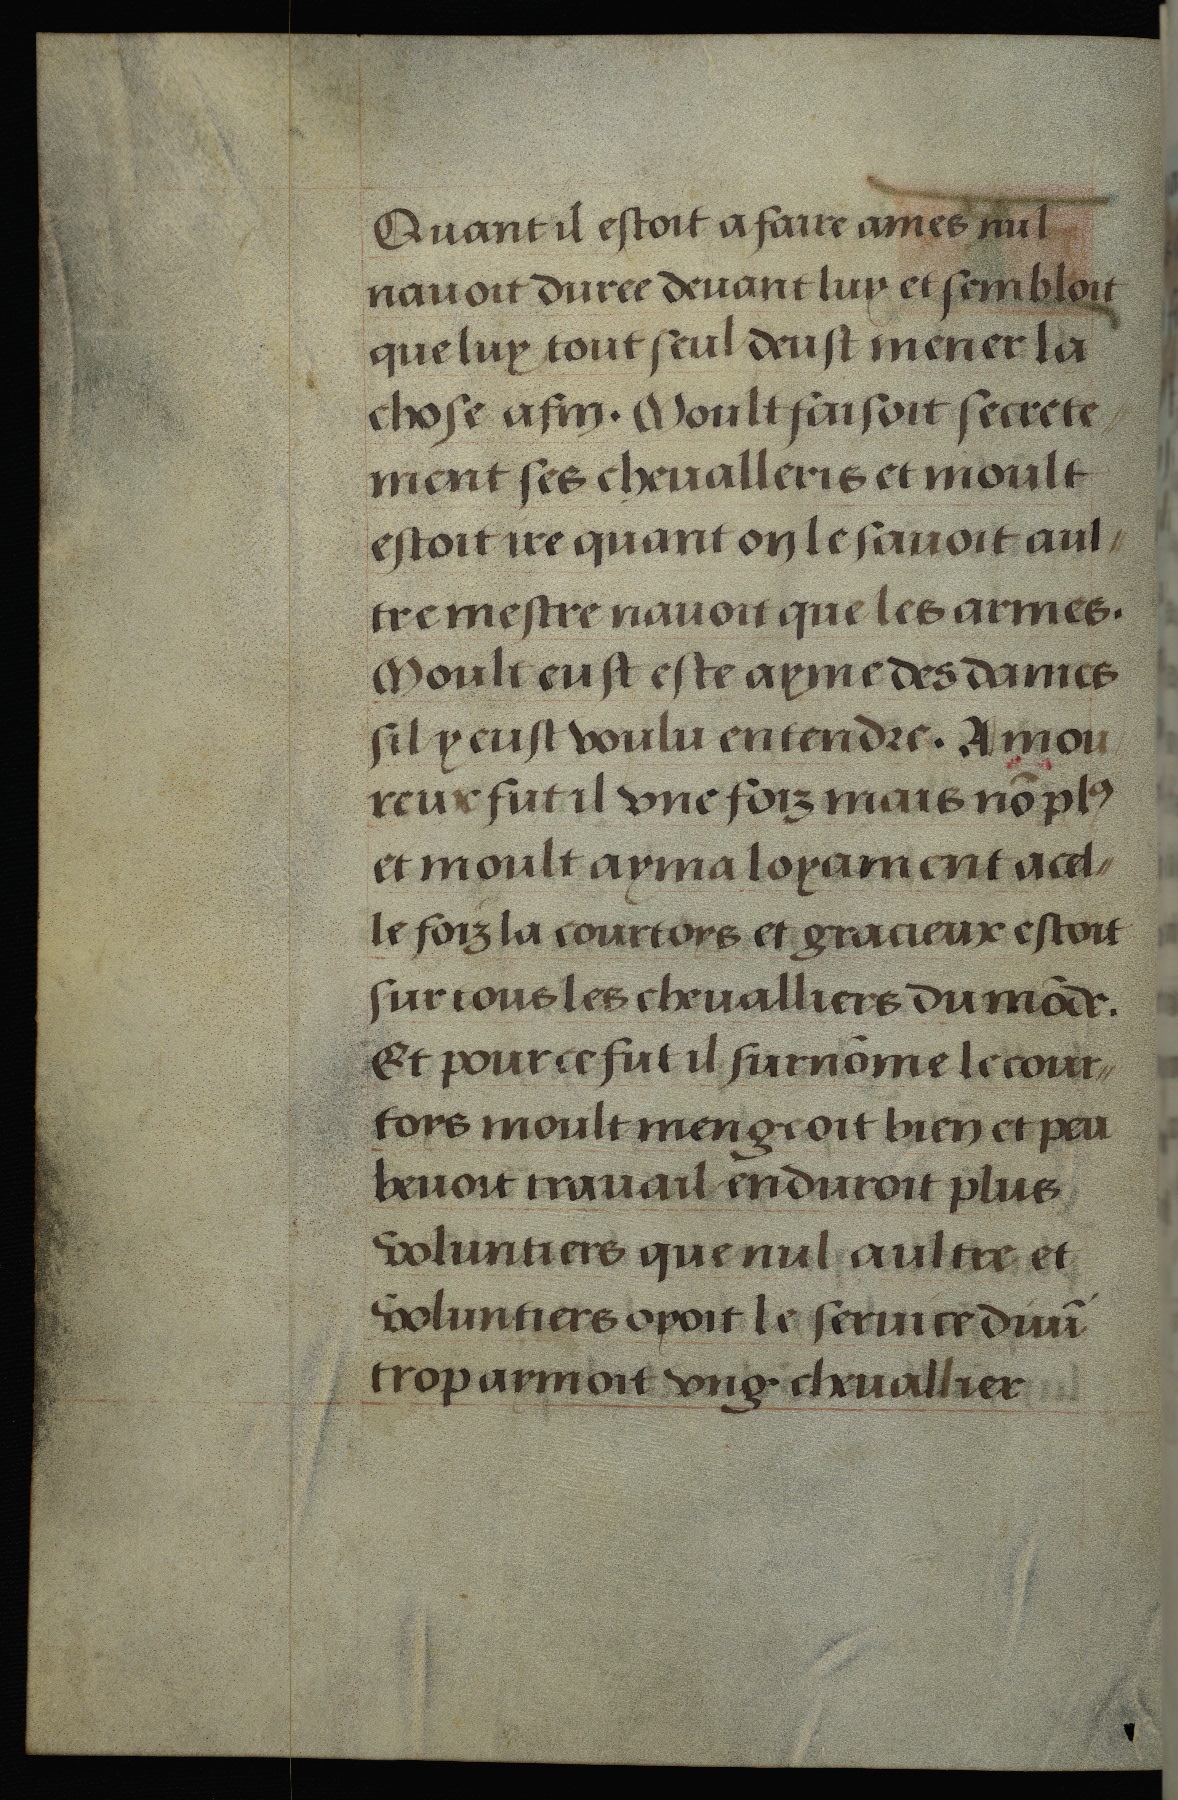 Quant il estoit a faire ames nul
nauoit duree deuant luy et sembloit
que luy tout seul deust mener la
chose afin. Moult faisoit secrete/
ment ses cheualleris et moult
estoit ire quant on le sauoit aul//
tre mestre nauoit que les armes.
Moult eust este ayme des dames
sil y eust voulu entendre. Amou
reux fut il vne foiz mais nō plꝰ
et moult ayma loyament a cel//
le foiz la courtoys et gracieux estoit
sur tous les cheualliers du mōde.
Et pour ce fut il surnōme le cour//
toys moult mengeoit bien et peu
beuoit trauail enduroit plus
voluntiers que nul aultre et
voluntiers oyoit le seruice diuī
trop aymoit vng cheuallier